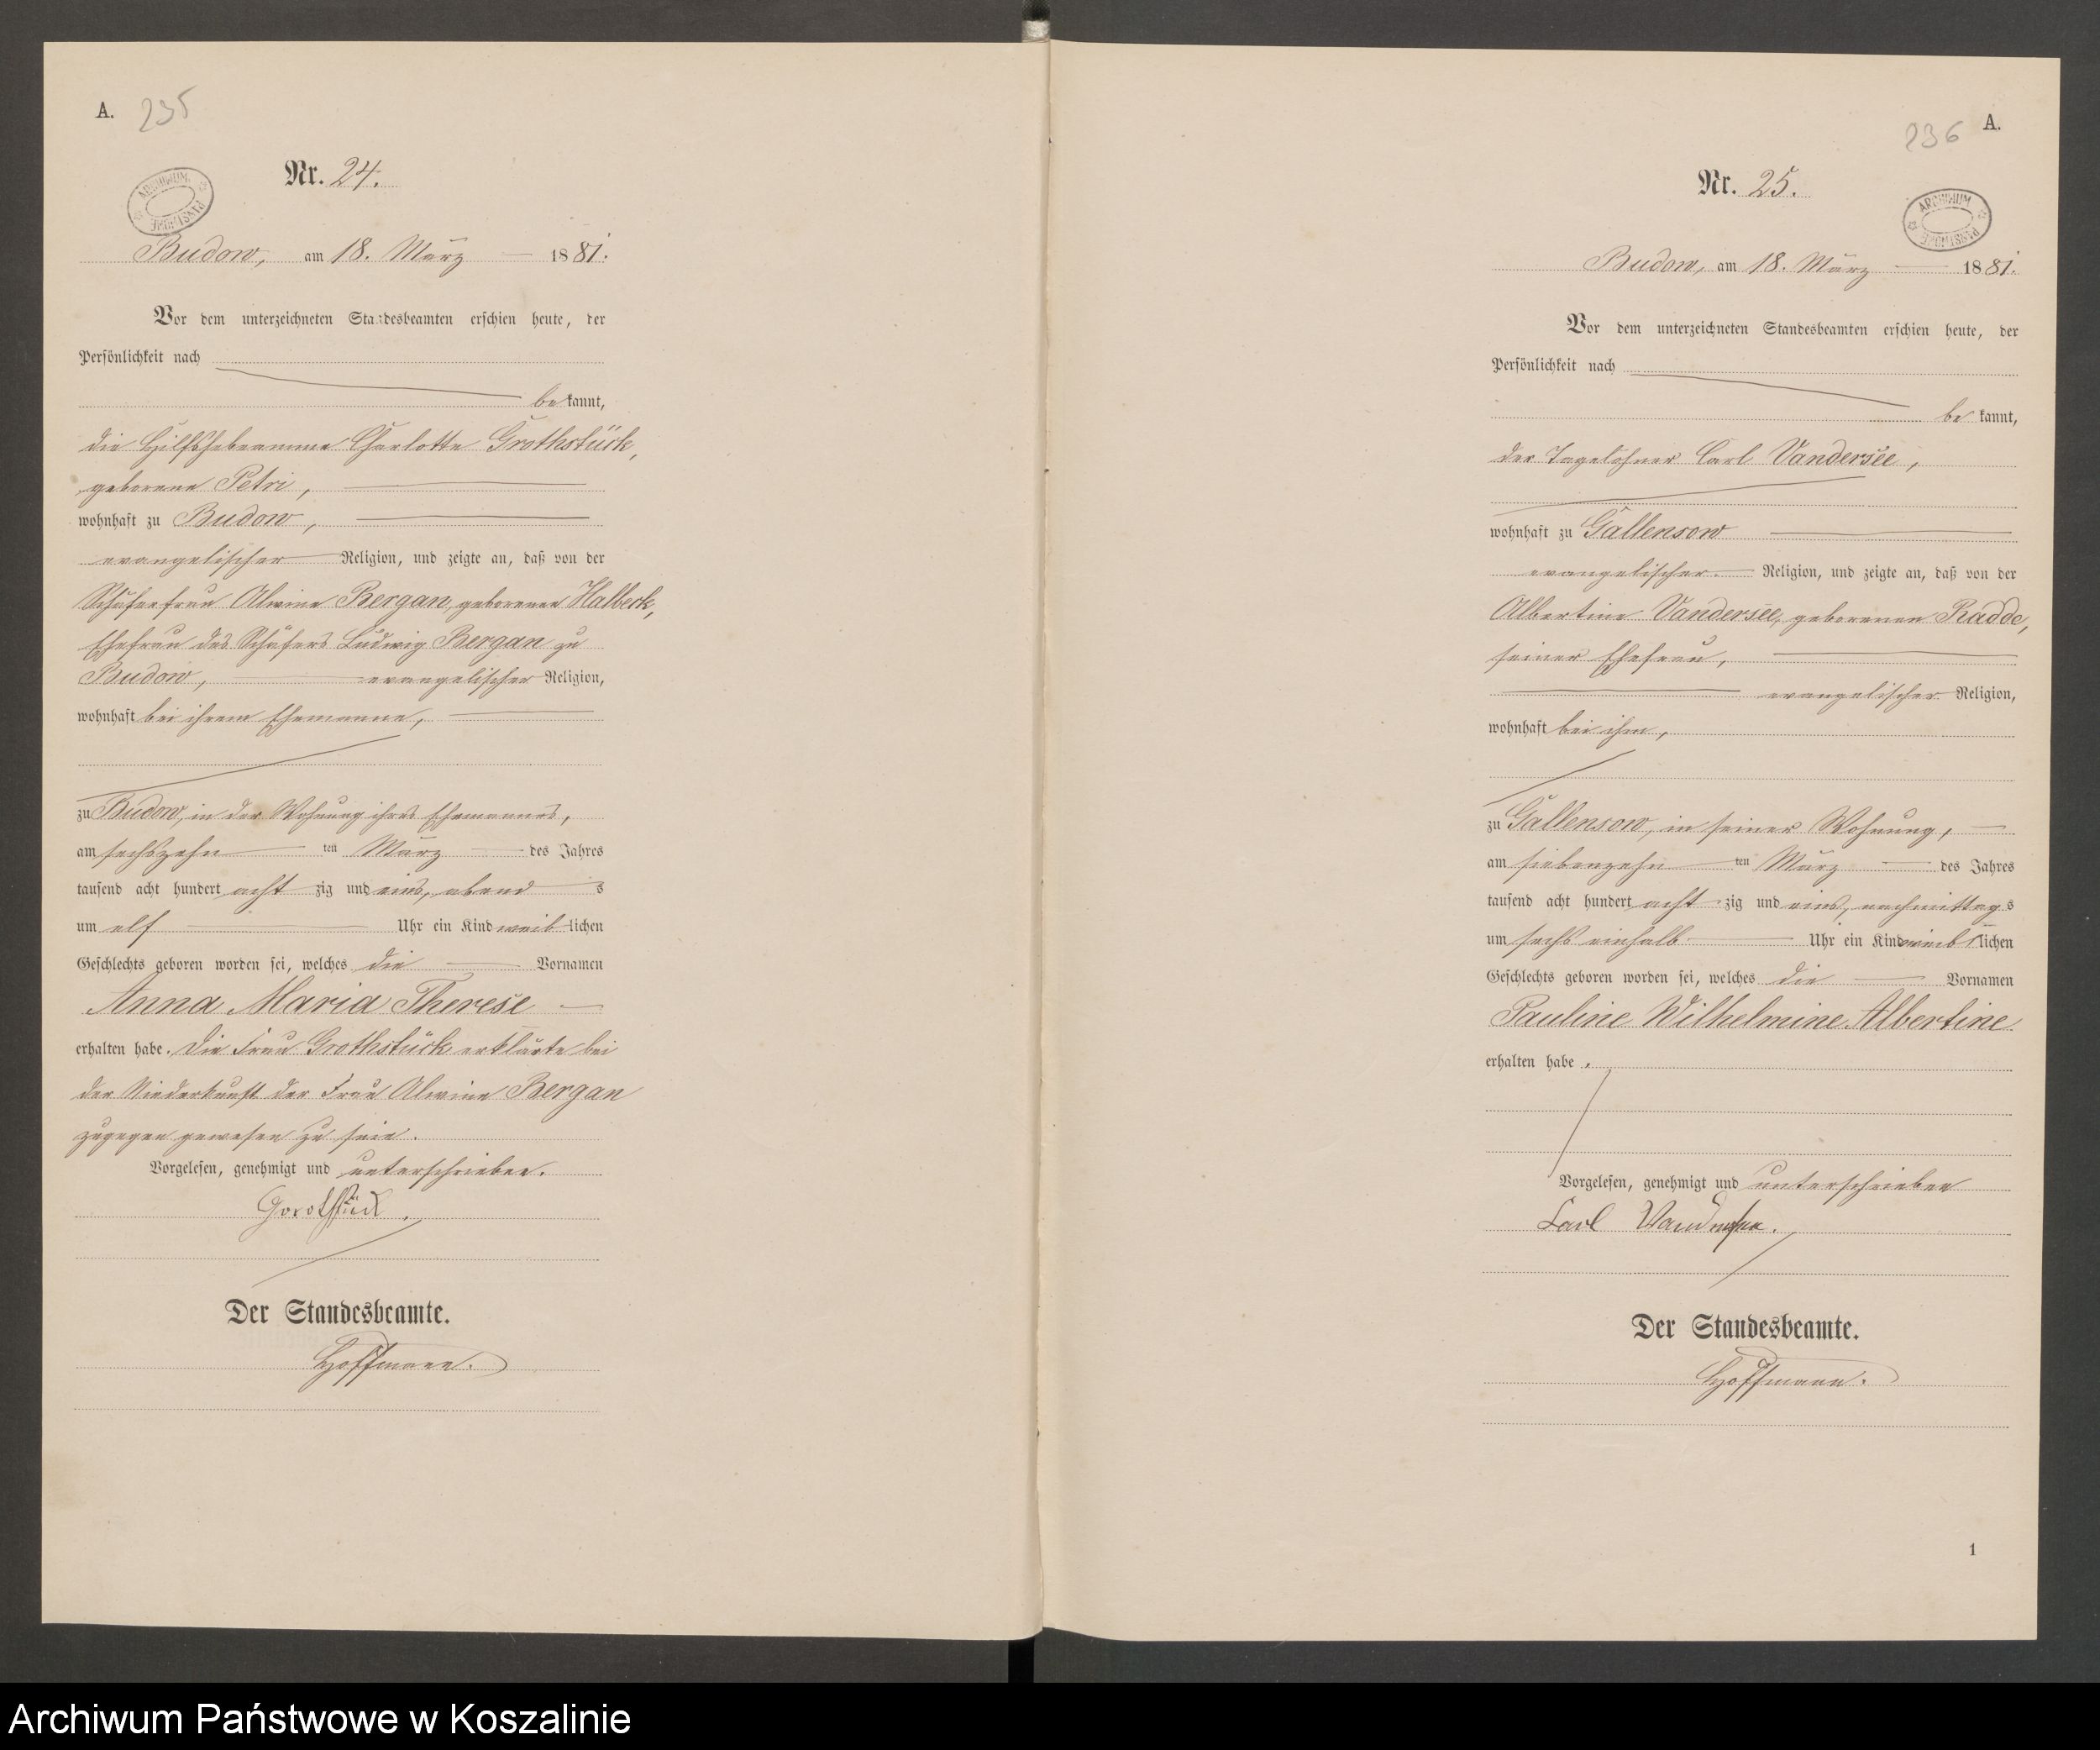 A. 235
ARCHIWUM PAŃSTWOWE
Nr. 24.
Budow, am 18. März 1881.
Vor dem unterzeichneten Standesbeamten erschien heute, der
Persönlichkeit nach
bekannt,
die Hilfshebeamme Charlotte Grothstück,
geborene Petri,
wohnhaft zu Budow,
evangelischer Religion, und zeigte an, daß von der
Schäferfrau Alwine Bergan, geborenen Halbeck,
Ehefrau des Schäfers Ludwig Bergan zu
Budow, evangelischer Religion,
wohnhaft bei ihrem Ehemanne,
zu Budow, in der Wohnung ihres Ehemannes,
am sechszehn ten März des Jahres
tausend acht hundert acht zig und eins, abend s
um elf Uhr ein Kind weiblichen
Geschlechts geboren worden sei, welches die Vornamen
Anna Maria Therese
erhalten habe. Die Frau Grothstück erklärte bei
der Niederkunft der Frau Alwine Bergan
zugegen gewesen zu sein.
Vorgelesen, genehmigt und unterschrieben.
Der Standesbeamte.
Hoffmann.
236 A.
ARCHIWUM PAŃSTWOWE
Nr. 25.
Budow, am 18. März 1881.
Vor dem unterzeichneten Standesbeamten erschien heute, der
Persönlichkeit nach
bekannt,
der Tagelöhner Carl Vandersee,
wohnhaft zu Gallensow
evangelischer Religion, und zeigte an, daß von der
Albertine Vandersee, geborenen Radde,
seiner Ehefrau,
evangelischer Religion,
wohnhaft bei ihm,
zu Gallensow, in seiner Wohnung,
am siebenzehn ten März des Jahres
tausend acht hundert acht zig und eins, nachmittags
um sechs einhalb Uhr ein Kind weiblichen
Geschlechts geboren worden sei, welches die Vornamen
Pauline Wilhelmine Albertine
erhalten habe.
Vorgelesen, genehmigt und unterschrieben
Carl Vandersee.
Der Standesbeamte.
Hoffmann.
1
Archiwum Państwowe w Koszalinie